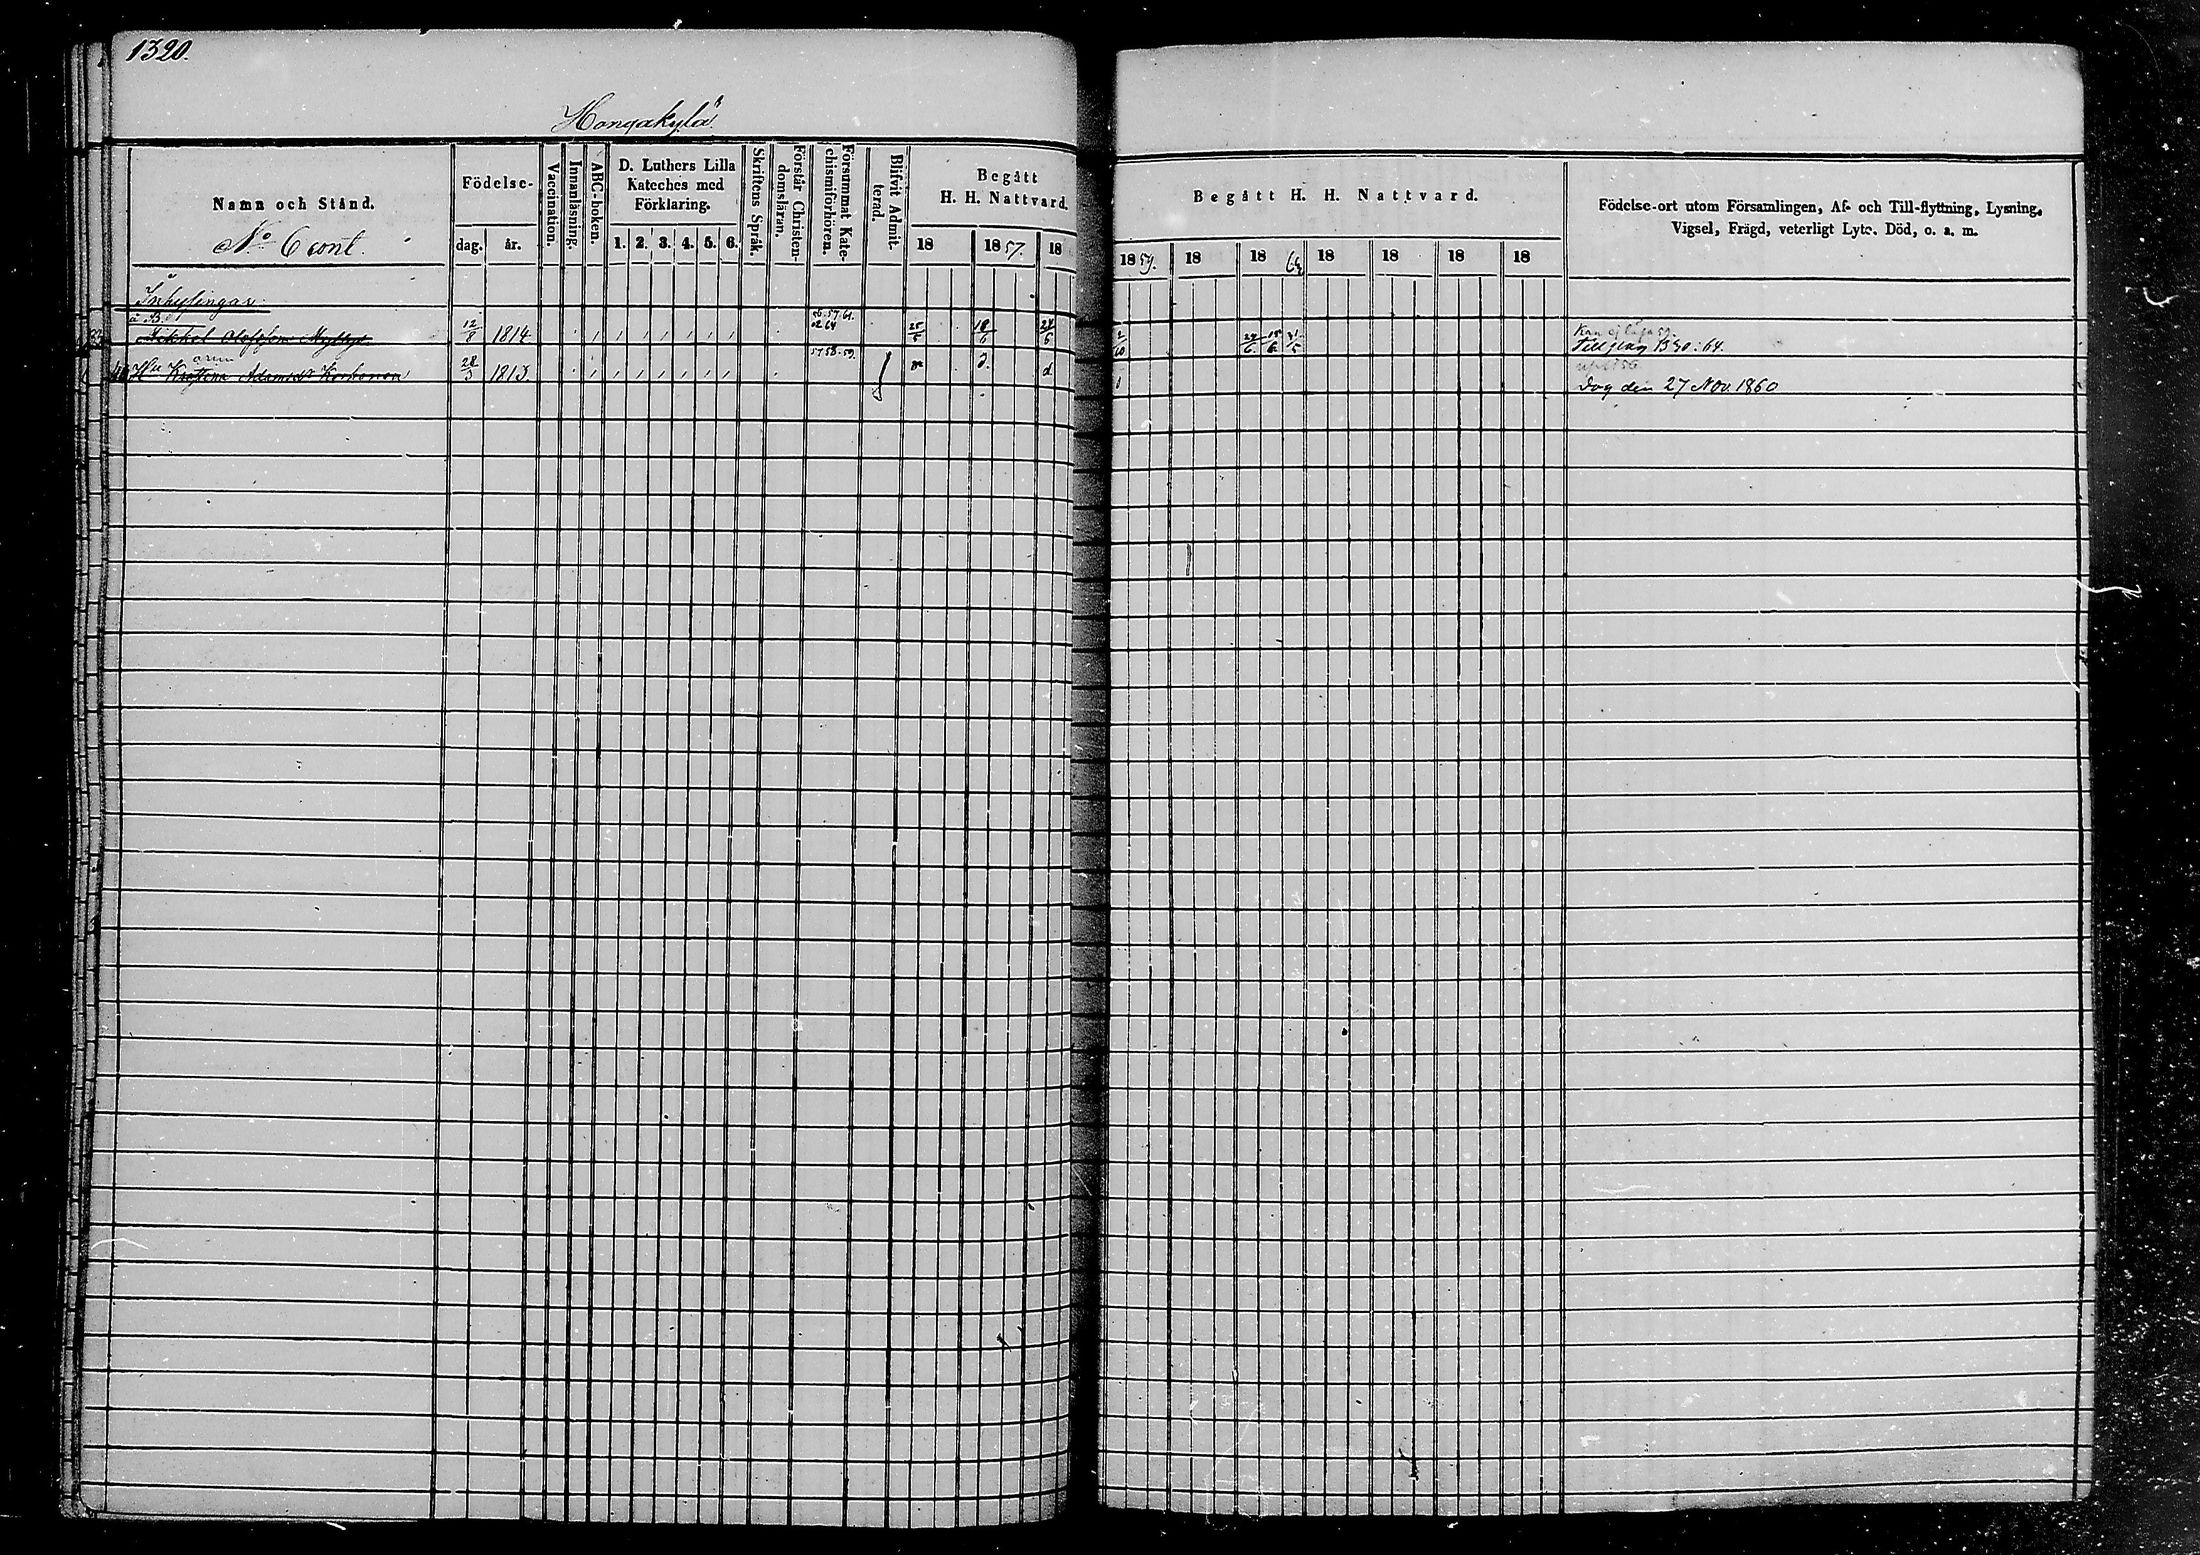 1320.
Hongakylä.
Namn och Stånd.
No 6 cont.
Födelse-
dag. år.
Vaccination.
Innanläsning.
ABC-boken.
D. Luthers Lilla
Kateches med
Förklaring.
1. 2. 3. 4. 5. 6.
Skriftens Språk.
Förstår Christen-
domsläran.
Försummat Kate-
chismiförhören.
Blifvit Admit-
terad.
Begått
H. H. Nattvard.
18 1857. 18
Begått H. H. Nattvard.
1859. 18 18 64 18 18 18 18
Födelse-ort utom Församlingen, Af- och Till-flyttning, Lysning,
Vigsel, Frägd, veterligt Lyte. Död, o. a. m.
Inhysingar
å B.
Mikkel Olofsson 12/8 1814 57 61. 62 64 25/5 18/6 24/6 2/10 24/6 15/6 31/5
Till pag 1330: 64.
Hu Adamsdr Korhonen 28/3 1813. 57 58. 59. d. d
Dog den 27 Nov. 1860